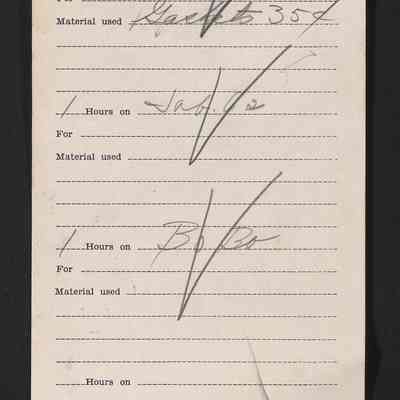 For
Material used Gaskets 35¢
1 Hours on Lab.
For
Material used
1 Hours on Bo Bo
For
Material used
Hours on